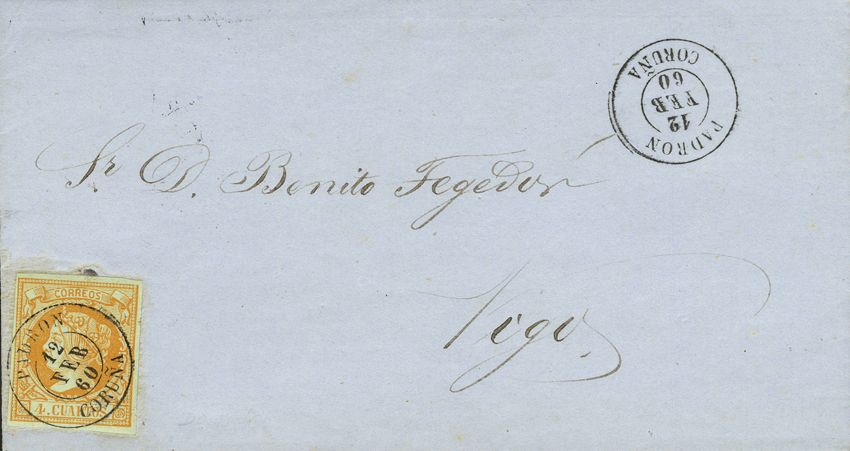 PADRON
12
FEB
60
CORUÑA
Sr D. Benito Tegedor
Vigo
CORREOS
PADRON
12
FEB
60
CORUÑA
4. CUARTOS